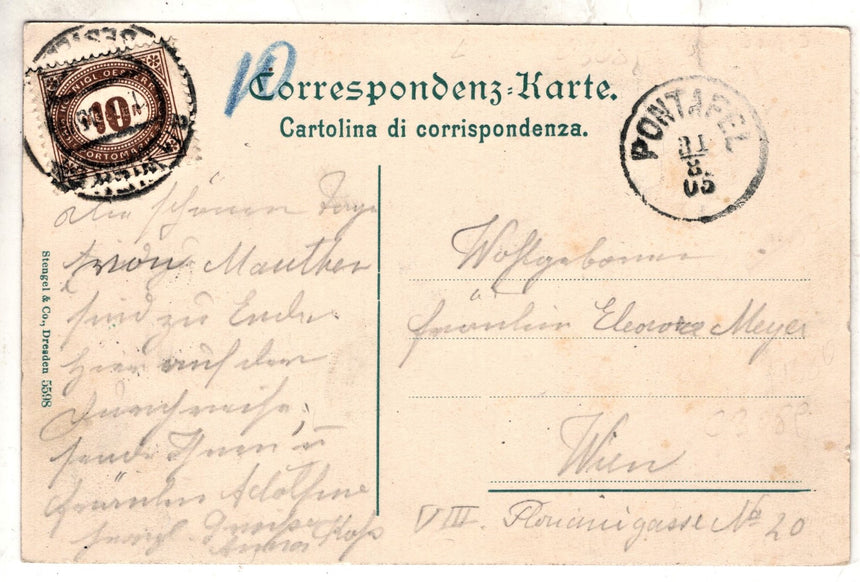 10
Correspondenz-Karte.
Cartolina di corrispondenza.
PONTAFEL
31
8.
05
10
PORTOMARKE
die schönen Tage
von Mauthen
sind zu Ende.
Hier auf der
Durchreise,
sende Ihnen u
Fräulein Adolfine
herzl. Grüsse
Stengel & Co., Dresden 5598
Wohlgeboren
Fräulein Eleonore Meyer
Wien
VIII. Florianigasse No 20